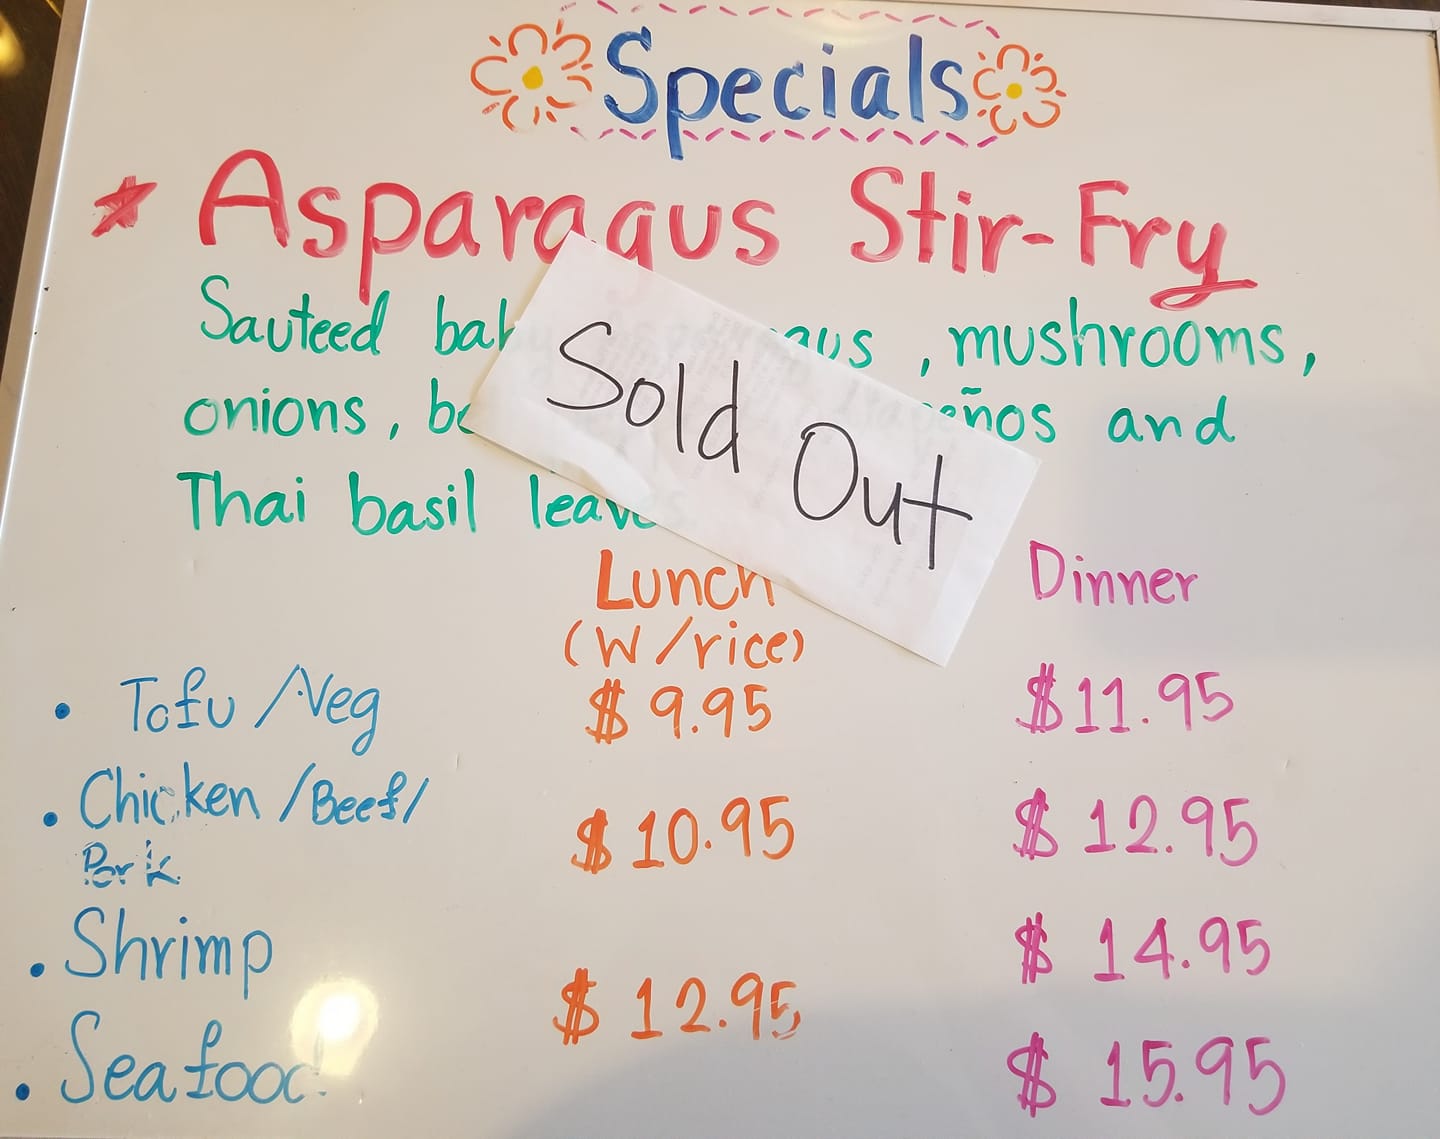 Specials
* Asparagus Stir-Fry
Sauteed , mushrooms,
onions, and
Thai basil leaves
Sold Out
Lunch Dinner
(W/rice)
• Tofu/Veg $9.95 $11.95
• Chicken/Beef/ $10.95 $12.95
Pork
• Shrimp $14.95
$12.95
• Seafood $15.95